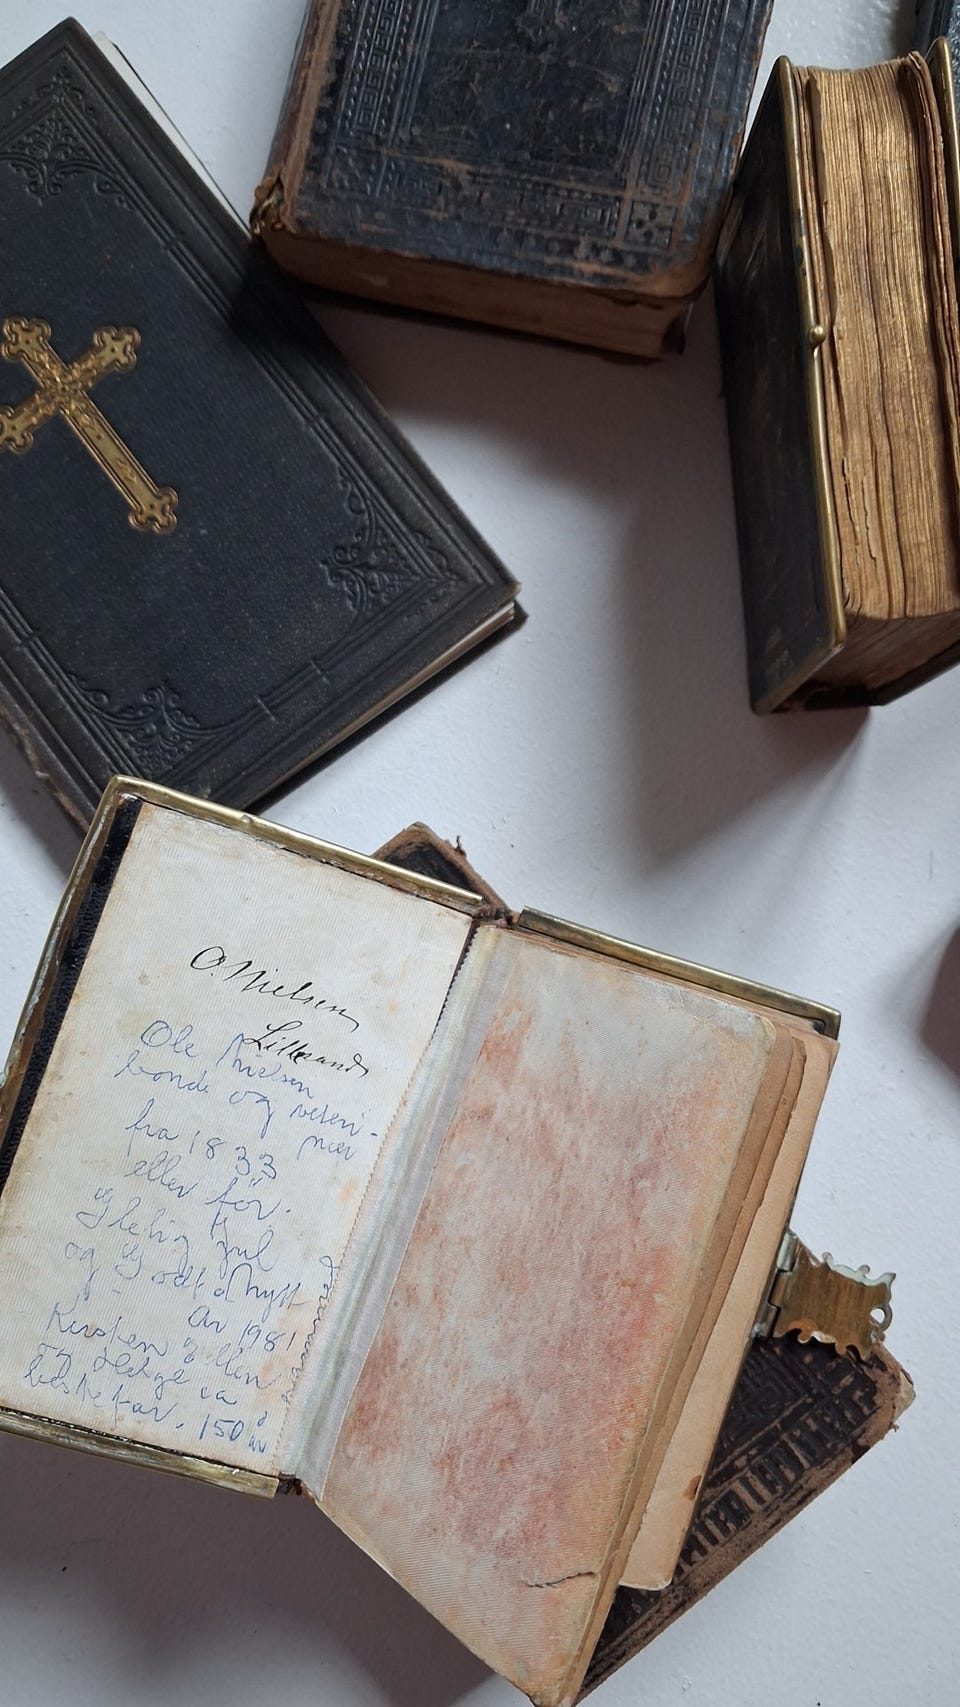 O. Nielsen
Lillesand
Ole Nielsen
bonde og veteri-
nær
fra 1833
eller før.
Gledig Jul
og Godt Nytt
år 1981
Kirsten Ellen
og Helge
bestefar. 150 år